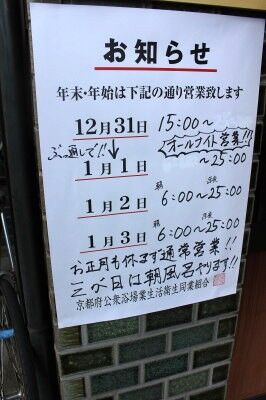 お知らせ
年末・年始は下記の通り営業致します
12月31日 15:00〜
ぶっ通しで!! オールナイト営業!!
1月1日 〜25:00
朝 深夜
1月2日 6:00〜25:00
朝 深夜
1月3日 6:00〜25:00
お正月も休まず通常営業!!
三が日は朝風呂やります!!
京都府公衆浴場業生活衛生同業組合